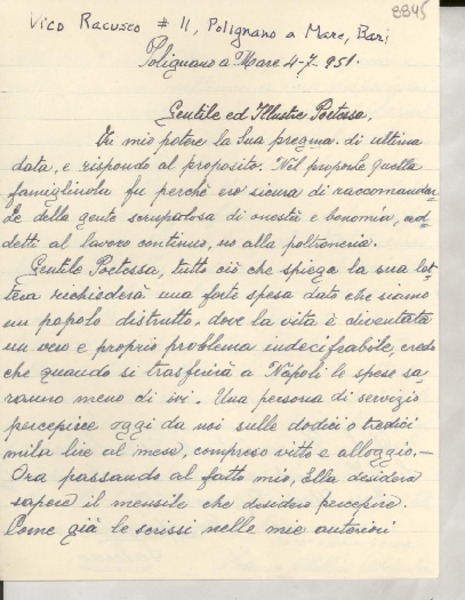 8845
Vico Racusco # 11, Polignano a Mare, Bari
Polignano a Mare 4-7-951.
Gentile ed Illustre Poetessa,
In mio potere la Sua pregma. di ultima
data, e rispondo al proposito. Nel proporle quella
famigliuola fu perchè ero sicura di raccomandar-
le della gente scrupolosa di onestà e bonomia, ad-
detti al lavoro continuo, no alla poltroneria.
Gentile Poetessa, tutto ciò che spiega la sua let-
tera richiederà una forte spesa dato che siamo
un popolo distrutto, dove la vita è diventata
un vero e proprio problema indecifrabile, credo
che quando si trasferirà a Napoli le spese sa-
ranno meno di ivi. Una persona di servizio
percepisce oggi da noi sulle dodici o tredici
mila lire al mese, compreso vitto e alloggio.—
Ora passando al fatto mio, Ella desidera
sapere il mensile che desidero percepire.
Come già le scrissi nelle mie anteriori